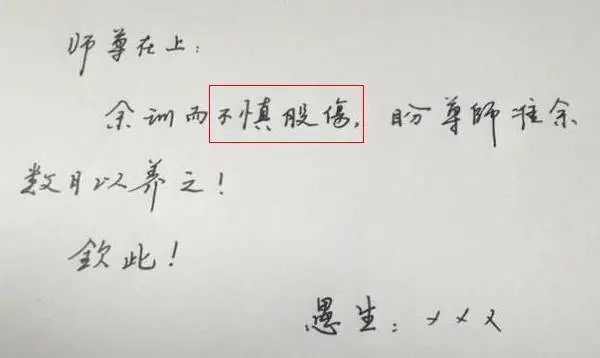 师尊在上：
余训而不慎股傷，盼尊師准余
数月以养之！
钦此！
愚生：×××